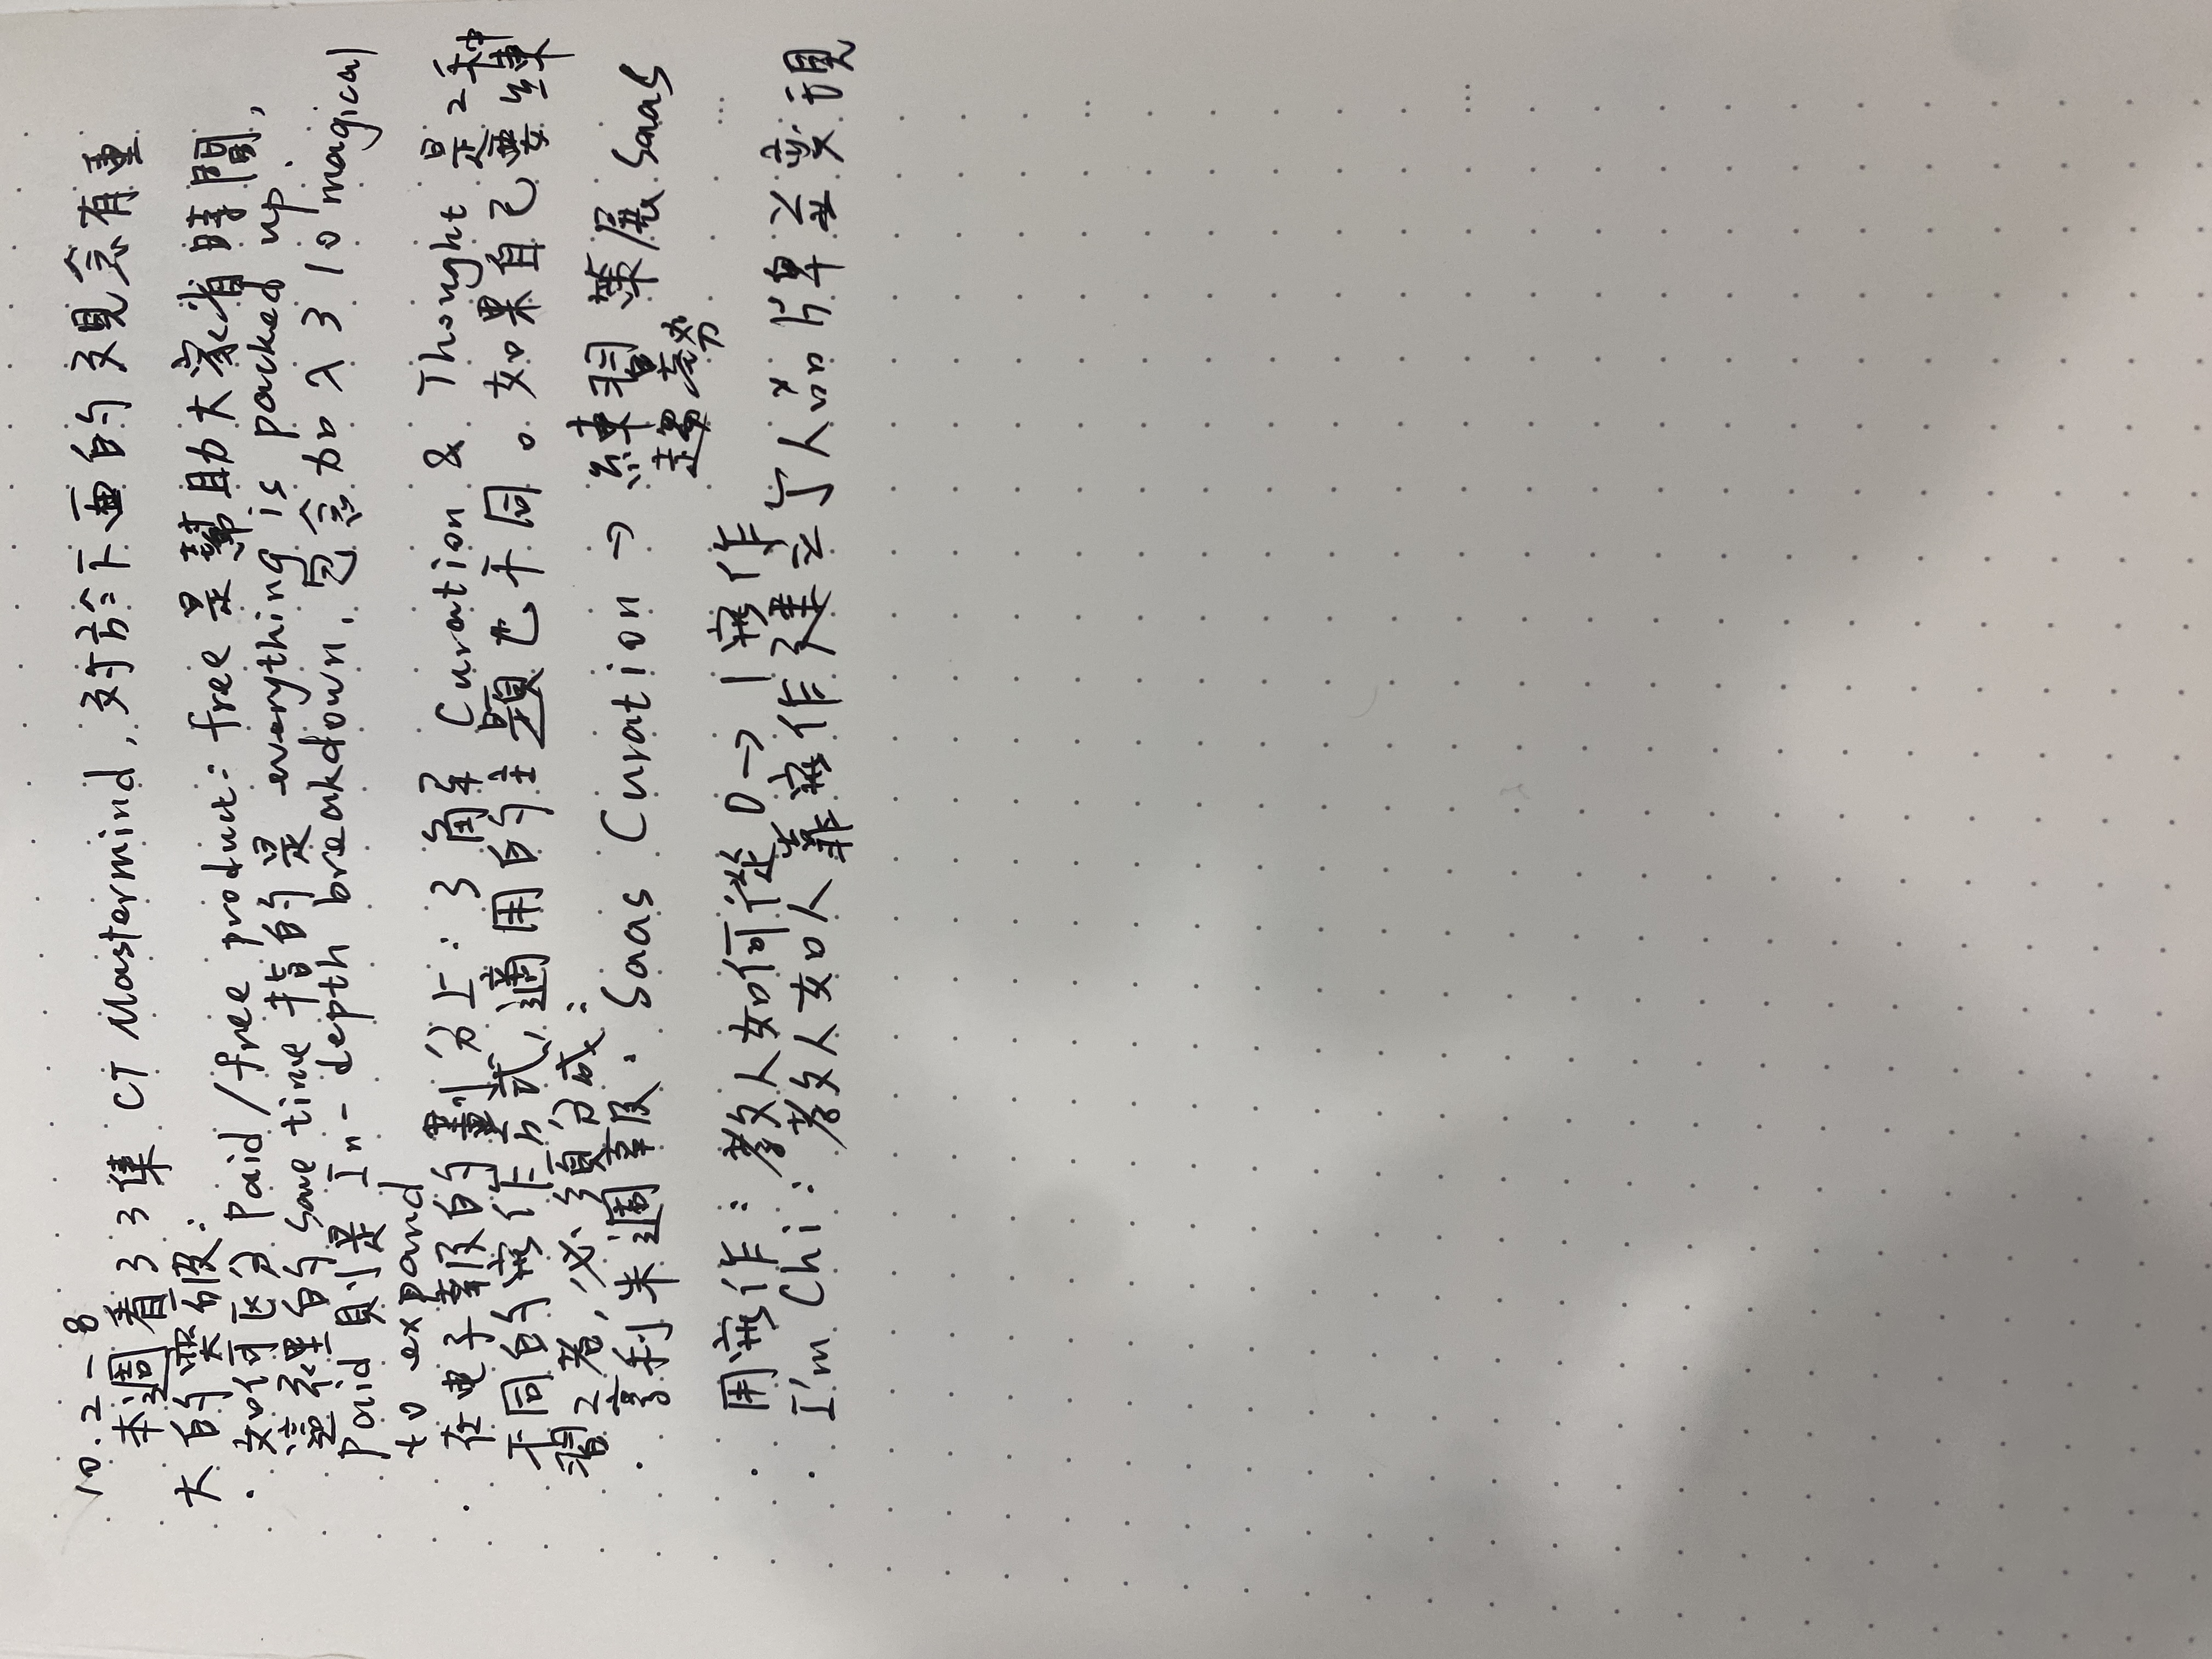 10.2-8
本週看了3集 CT Mastermind, 对於下面的观念有重
大的突破:
· 如何区分 Paid/free product: free 是幫助大家省時間,
這裡的 save time 指的是 everything is packed up.
Paid 則是 In-depth breakdown, 包含加入了 10 magical
to expand
· 在电子報的劃分上: 了解 Curation & Thought 是2种
不同的寫作方式, 適用的主題也不同。如果自己要練
習2者, 必須分成:
· 亨利朱週報. Saas Curation → 練習策展 SaaS
趨勢
· 用寫作: 教人如何從 0 → 1 寫作
· I'm Chi: 教人如人靠寫作建立个人品牌並变現